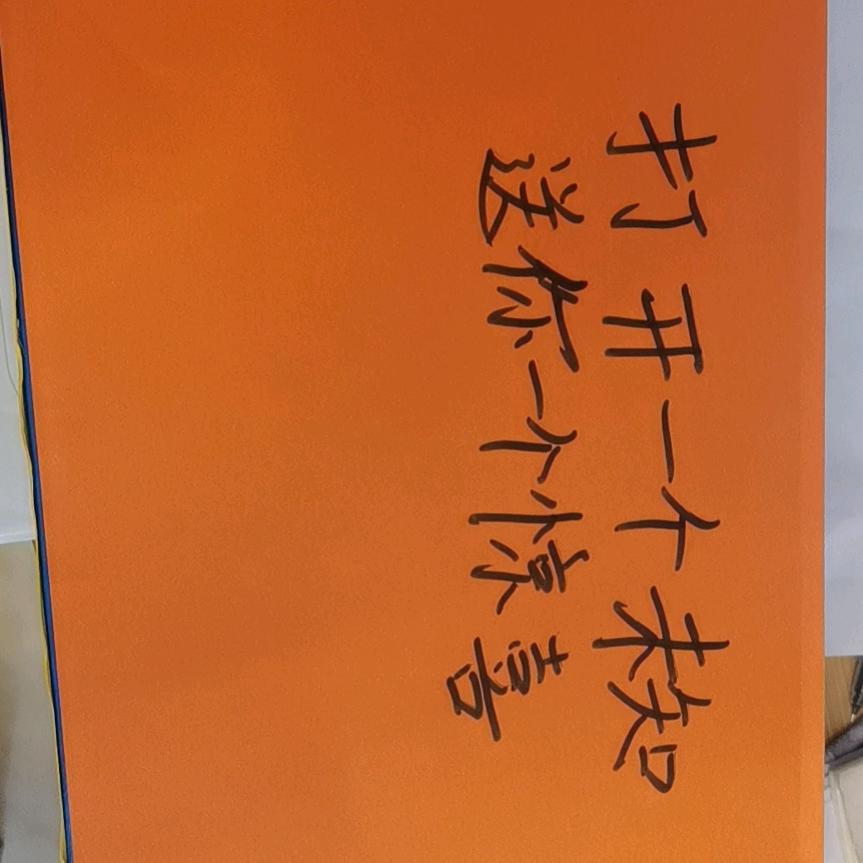 打开一个未知
送你一个惊喜